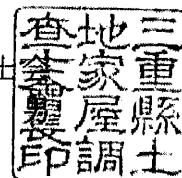 三重縣土
地家屋調
査士會會長印